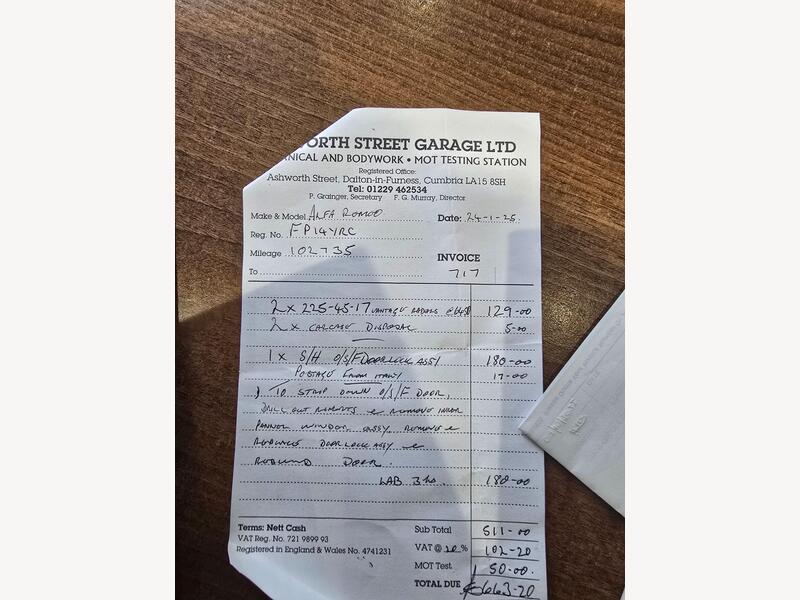 ORTH STREET GARAGE LTD
NICAL AND BODYWORK • MOT TESTING STATION
Registered Office:
Ashworth Street, Dalton-in-Furness, Cumbria LA15 8SH
Tel: 01229 462534
P. Grainger, Secretary F. G. Murray, Director
Make & Model ALFA ROMEO Date: 24-1-25.
Reg. No. FP14YRC
Mileage 102735 INVOICE
To 717
2 x 225-45-17 VANTAGE RADIALS 129-00
2 x CARCASE DISPOSAL 5-00
1 x S/H O/S/F DOOR LOCK ASSY 180-00
POSTAGE FROM ITALY 17-00
) TO STRIP DOWN O/S/F DOOR,
DRILL OUT RIVETS & REMOVE INNER
PANNEL WINDOW ASSY. REMOVE &
REPLACE DOOR LOCK ASSY &
REBUILD DOOR.
LAB 3 hrs. 180-00
Terms: Nett Cash Sub Total 511-00
VAT Reg. No. 721 9899 93 VAT @ 20 % 102-20
Registered in England & Wales No. 4741231
MOT Test 50-00.
TOTAL DUE £663-20